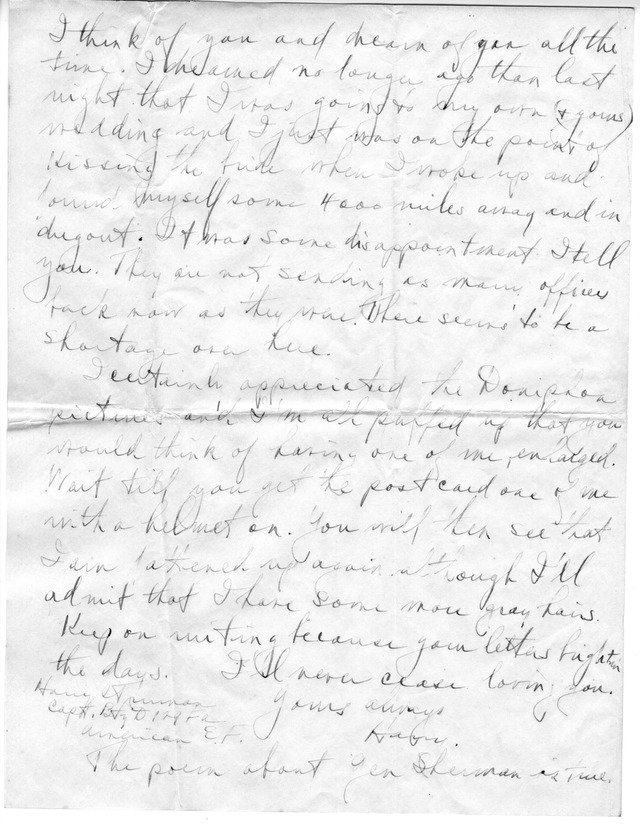 I think of you and dream of you all the
time. I dreamed no longer ago than last
night that I was going to my own (& yours)
wedding and I just was on the point of
kissing the bride when I woke up and
found myself some 4000 miles away and in
dugout. It was some disappointment I tell
you. They are not sending as many officers
back now as they were. There seems to be a
shortage over here.
I certainly appreciated the Doniphan
pictures and I'm all puffed up that you
would think of having one of me enlarged.
Wait till you get the postcard one of me
with a helmet on. You will then see that
I am fattened up again although I'll
admit that I have some more gray hairs.
Keep on writing because your letters brighten
the days. I'll never cease loving you.
Harry S Truman
Capt. Bty D 129 F A
American E. F.
Yours always
Harry.
The poem about Gen Sherman is true.